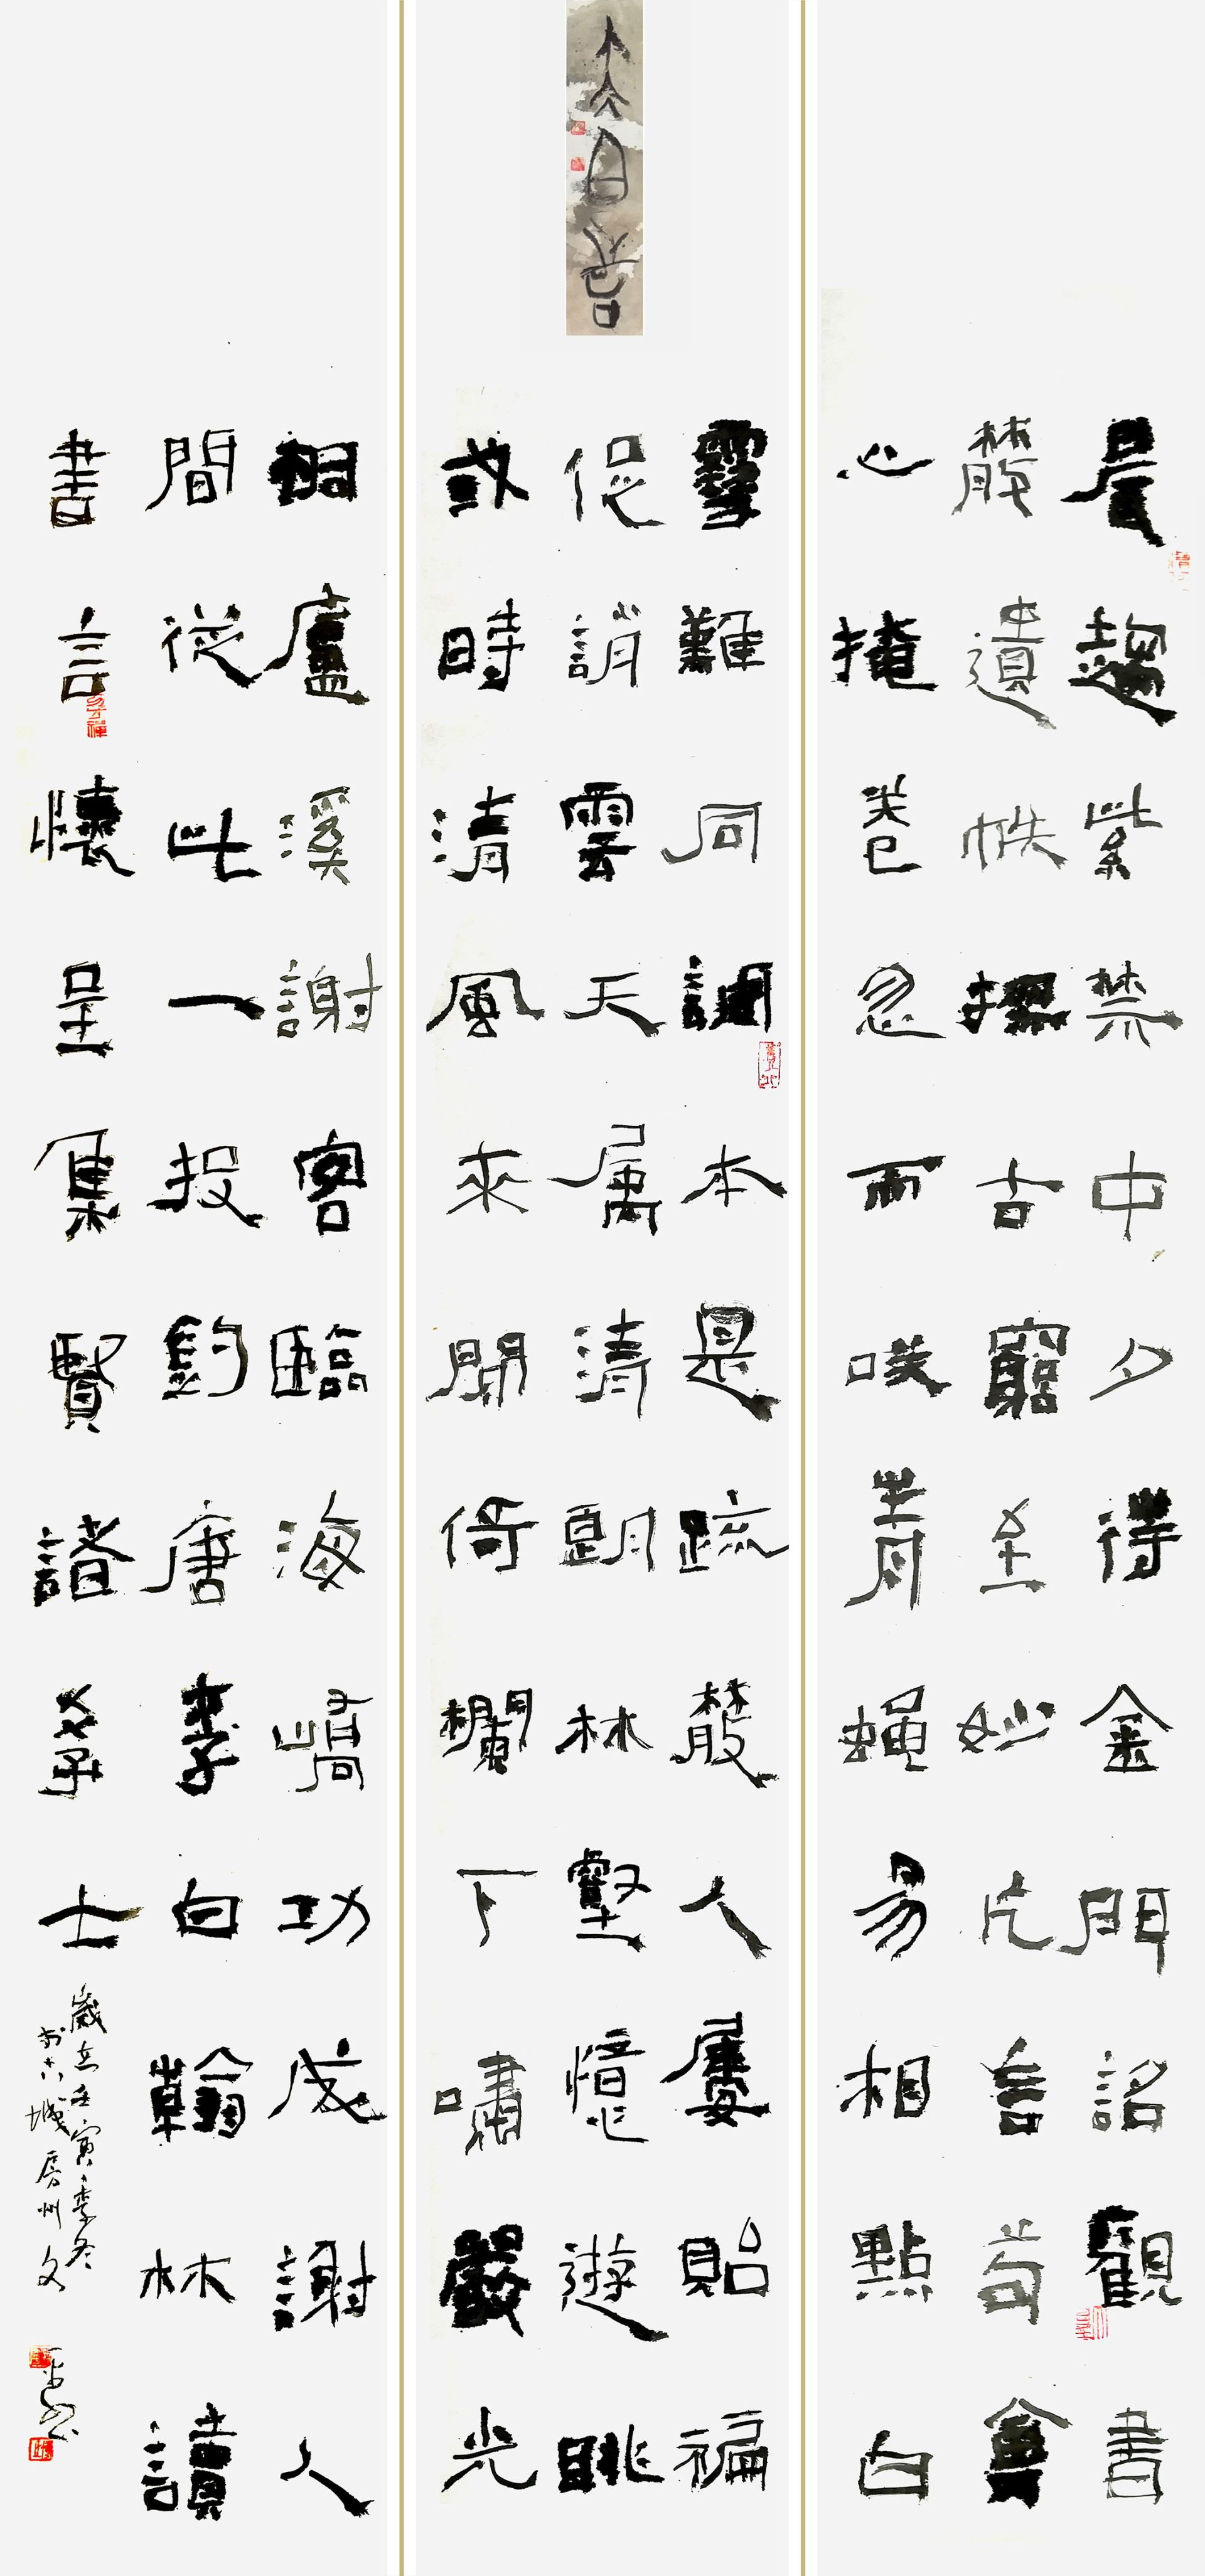 太白詩
晨趨紫禁中夕待金門詔觀書
散遺帙探古窮至妙片言苟會
心掩卷忽而咲青蠅易相點白
雪難同調本是疏散人屢貽褊
促誚雲天屬清朗林壑憶遊眺
或時清風來閒倚欄下嘯嚴光
桐廬溪謝客臨海嶠功成謝人
間從此一投釣唐李白翰林讀
書言懷呈集賢諸斈士
歲在壬寅之季冬
於古城房州文